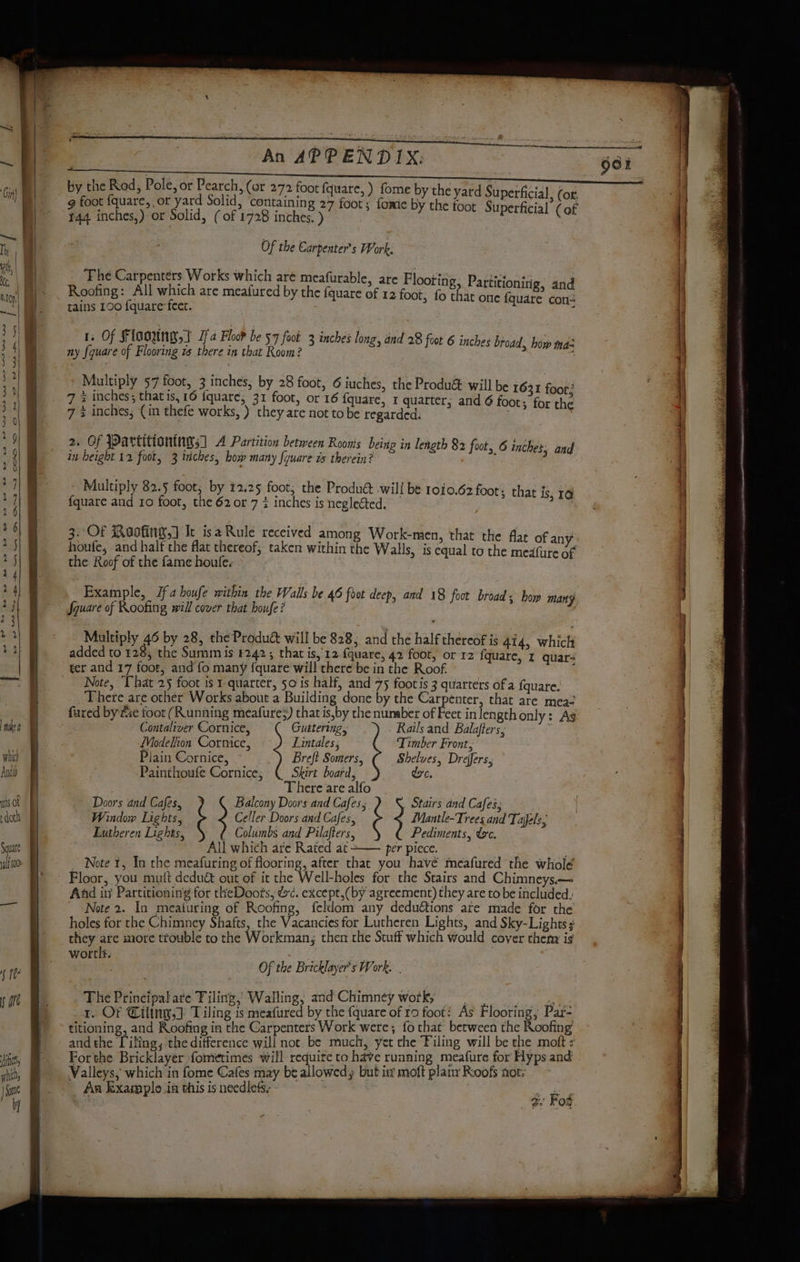 An APPENDIX.
901
by the Rod, Pole, or Pearch, (or 272 foot ſquare, ) ſome by the yard Superficial, (or
9 foot ſquare, or yard Solid, containing 27 foot; ſome by the foot Superficial (of
144 inches,) or Solid, (of 1728 inches. )
Of the Carpenter's Work.
The Carpenters Works which are meaſurable, are Flooring, Partitioning, and
Roofing: All which are meaſured by the ſquare of 12 foot, ſo that one ſquare con-
tains 100 ſquare feet.
1. Of Flooring,] If a Floor be 57 foot 3 inches long, and 28 foot 6 inches broad, how ma-
ny ſquare of Flooring is there in that Room?
Multiply 57 foot, 3 inches, by 28 foot, 6 iuches, the Product will be 1631 foot;
7 ½ inches; that is, 16 ſquare, 31 foot, or 16 ſquare, 1 quarter, and 6 foot; for the
7 ½ inches, (in theſe works, ) they are not to be regarded.
2. Of Partitioning,] A Partition between Rooms being in length 82 foot, 6 inches, and
in height 12 foot, 3 inches, how many ſquare is therein?
Multiply 82.5 foot, by 12.25 foot, the Product will be 1010.62 foot; that is, 10
ſquare and 10 foot, the 62 or 7 ½ inches is neglected.
3. Of Roofing,] It is a Rule received among Work-men, that the flat of any
houſe, and half the flat thereof, taken within the Walls, is equal to the meaſure of
the Roof of the ſame houſe.
Example, If a houſe within the Walls be 46 foot deep, and 18 foot broad; how many
ſquare of Roofing will cover that houſe?
Multiply 46 by 28, the Product will be 828, and the half thereof is 414, which
added to 128, the Summ is 1242; that is, 12 ſquare, 42 foot, or 12 ſquare, 1 quar-
ter and 17 foot, and ſo many ſquare will there be in the Roof.
Note, That 25 foot is 1 quarter, 50 is half, and 75 foot is 3 quarters of a ſquare.
There are other Works about a Building done by the Carpenter, that are mea-
ſured by the foot (Running meaſure;) that is, by the number of Feet in length only: As
Contaliver Cornice, Guttering, Rails and Balaſters,
Modellion Cornice, Lintales, Timber Front,
Plain Cornice, Breſt Somers, Shelves, Dreſſers,
Painthouſe Cornice, Skirt board, &c.
There are alſo
Doors and Caſes, Balcony Doors and Caſes, Stairs and Caſes,
Window Lights, Celler Doors and Caſes, Mantle-Trees and Taſſels,
Lutheren Lights, Columbs and Pilaſters, Pediments, &c.
All which are Rated at —— per piece.
Note 1, In the meaſuring of flooring, after that you have meaſured the whole
Floor, you muſt deduct out of it the Well-holes for the Stairs and Chimneys.—
And in Partitioning for the Doors, &c. except, (by agreement) they are to be included.
Note 2. In meaſuring of Roofing, ſeldom any deductions are made for the
holes for the Chimney Shafts, the Vacancies for Lutheren Lights, and Sky-Lights;
they are more trouble to the Workman, then the Stuff which would cover them is
worth.
Of the Bricklayer's Work.
The Principal are Tiling, Walling, and Chimney work,
1. Of Tiling,] Tiling is meaſured by the ſquare of 10 foot: As Flooring, Par-
titioning, and Roofing in the Carpenters Work were; ſo that between the Roofing
and the Tiling, the difference will not be much, yet the Tiling will be the moſt:
For the Bricklayer ſometimes will require to have running meaſure for Hyps and
Valleys, which in ſome Caſes may be allowed, but in moſt plain Roofs not.
An Example in this is needleſs.
2. Fos